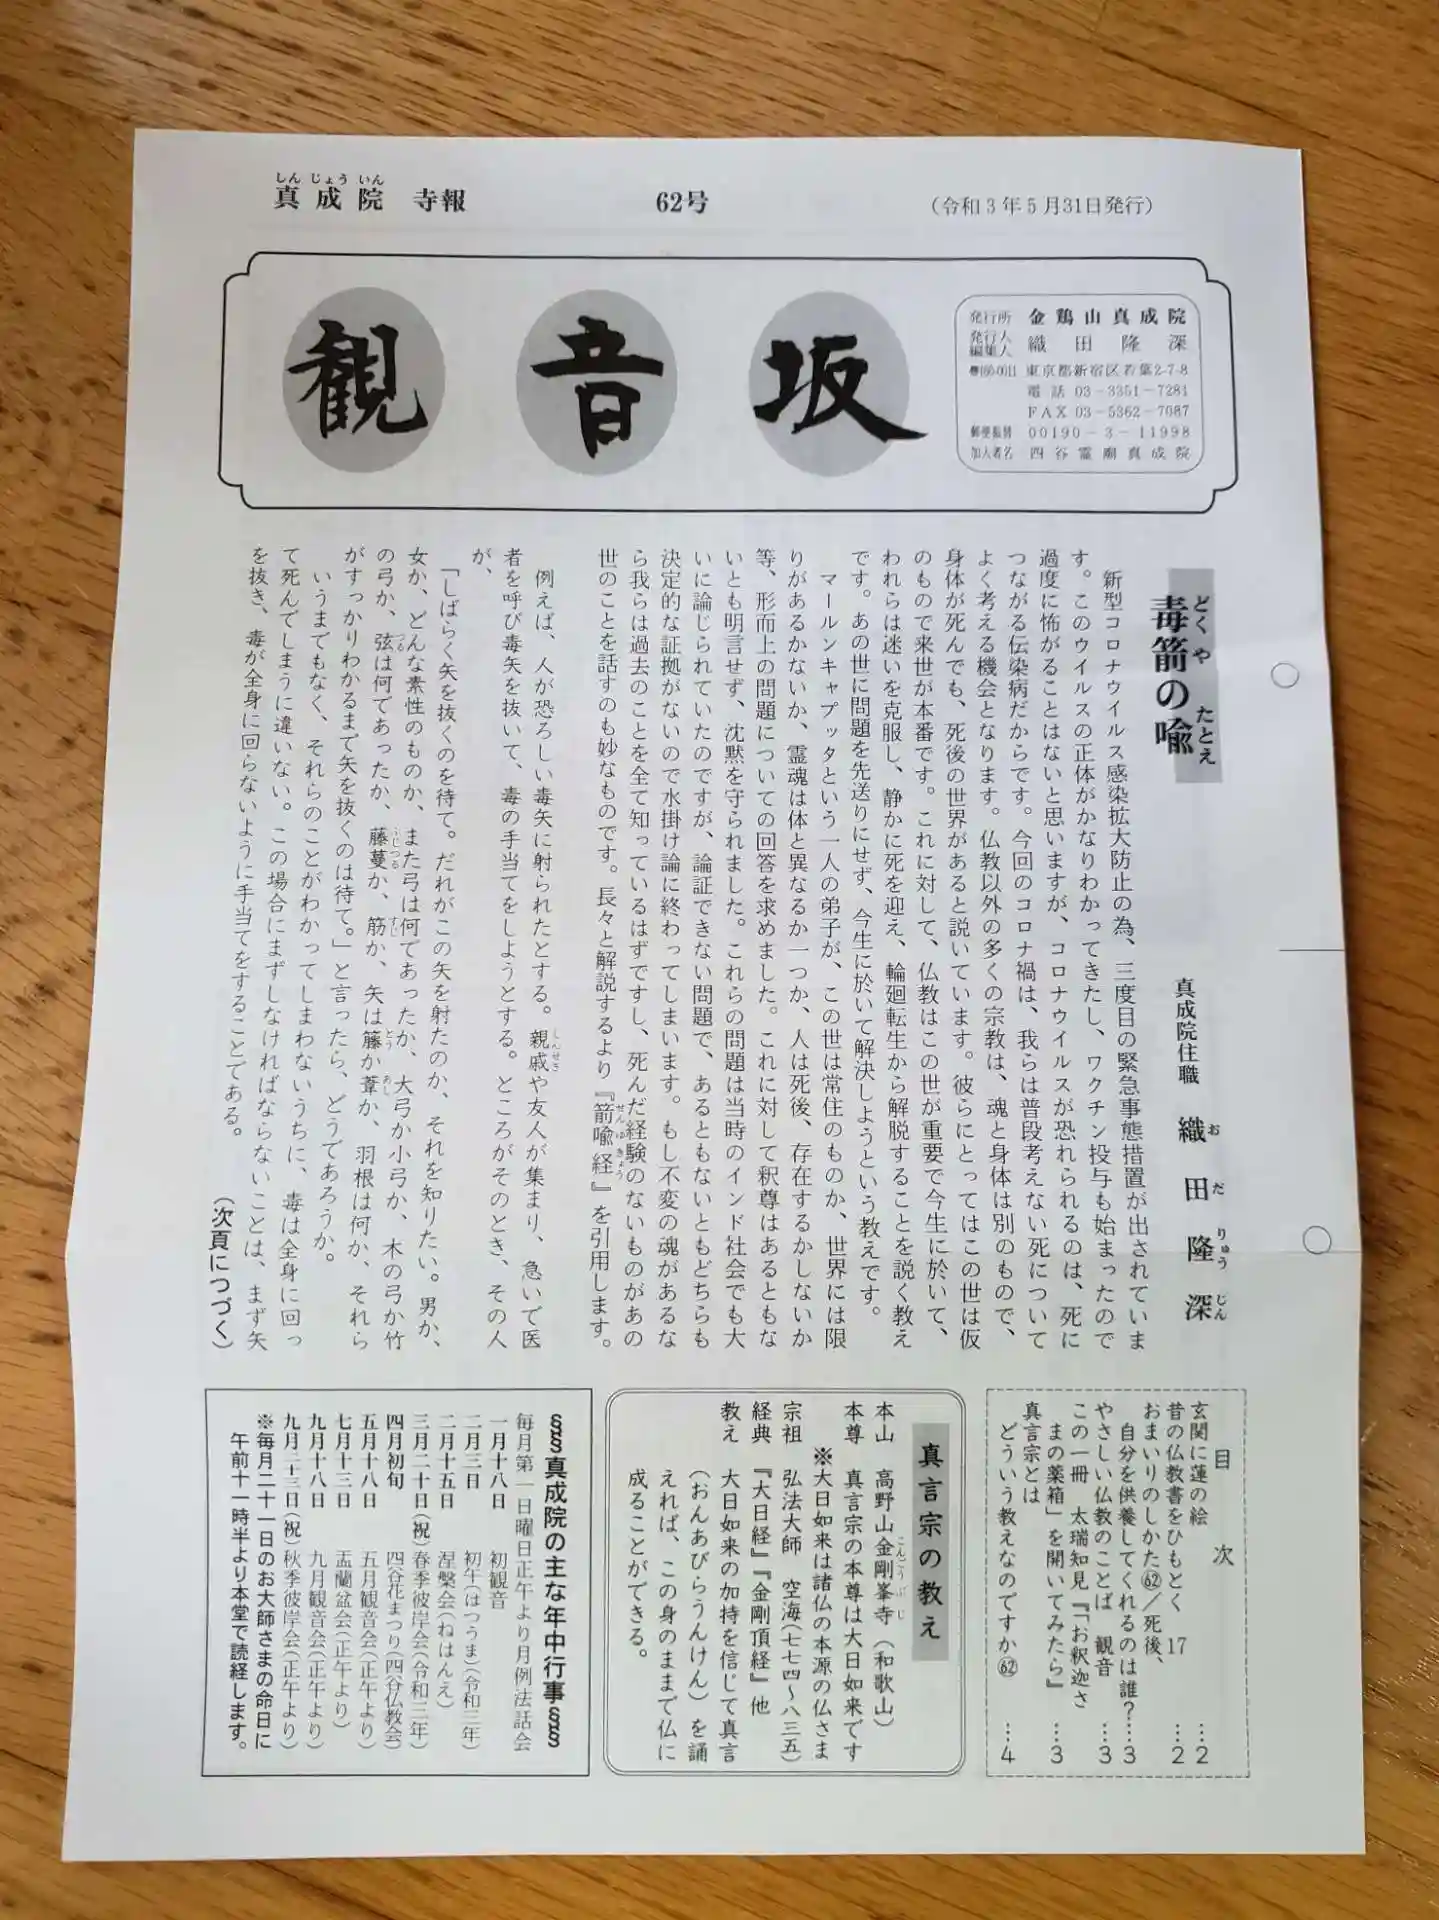 真成院 寺報
しんじょういん
62号
(令和3年5月31日発行)
観音坂
発行所 金鶏山真成院
発行人
編集人 織田隆深
〠160-0011 東京都新宿区若葉2-7-8
電話 03-3351-7281
FAX 03-5362-7087
郵便振替 00190-3-11998
加入者名 四谷霊廟真成院
毒箭の喩
どくや たとえ
真成院住職 織田隆深
おだりゅうじん
新型コロナウイルス感染拡大防止の為、三度目の緊急事態措置が出されていま
す。このウイルスの正体がかなりわかってきたし、ワクチン投与も始まったので
過度に怖がることはないと思いますが、コロナウイルスが恐れられるのは、死に
つながる伝染病だからです。今回のコロナ禍は、我らは普段考えない死について
よく考える機会となります。仏教以外の多くの宗教は、魂と身体は別のもので、
身体が死んでも、死後の世界があると説いています。彼らにとってはこの世は仮
のもので来世が本番です。これに対して、仏教はこの世が重要で今生に於いて、
われらは迷いを克服し、静かに死を迎え、輪廻転生から解脱することを説く教え
です。あの世に問題を先送りにせず、今生に於いて解決しようという教えです。
マールンキャプッタという一人の弟子が、この世は常住のものか、世界には限
りがあるかないか、霊魂は体と異なるか一つか、人は死後、存在するかしないか
等、形而上の問題についての回答を求めました。これに対して釈尊はあるともな
いとも明言せず、沈黙を守られました。これらの問題は当時のインド社会でも大
いに論じられていたのですが、論証できない問題で、あるともないともどちらも
決定的な証拠がないので水掛け論に終わってしまいます。もし不変の魂があるな
ら我らは過去のことを全て知っているはずですし、死んだ経験のないものがあの
世のことを話すのも妙なものです。長々と解説するより『箭喩経』を引用します。
せんゆきょう
例えば、人が恐ろしい毒矢に射られたとする。親戚や友人が集まり、急いで医
しんせき
者を呼び毒矢を抜いて、毒の手当てをしようとする。ところがそのとき、その人
が、
「しばらく矢を抜くのを待て。だれがこの矢を射たのか、それを知りたい。男か、
女か、どんな素性のものか、また弓は何であったか、大弓か小弓か、木の弓か竹
の弓か、弦は何であったか、藤蔓か、筋か、矢は籐か葦か、羽根は何か、それら
つる ふじつる すじ とう あし
がすっかりわかるまで矢を抜くのは待て。」と言ったら、どうであろうか。
いうまでもなく、それらのことがわかってしまわないうちに、毒は全身に回っ
て死んでしまうに違いない。この場合にまずしなければならないことは、まず矢
を抜き、毒が全身に回らないように手当てをすることである。
(次頁につづく)
目次
玄関に蓮の絵 …2
昔の仏教書をひもとく 17 …2
おまいりのしかた㊷/死後、
自分を供養してくれるのは誰?…3
やさしい仏教のことば 観音 …3
この一冊 太瑞知見『「お釈迦さ
まの薬箱」を開いてみたら』 …3
真言宗とは
どういう教えなのですか㊷ …4
真言宗の教え
本山 高野山金剛峯寺(和歌山)
こんごうぶじ
本尊 真言宗の本尊は大日如来です
※大日如来は諸仏の本源の仏さま
宗祖 弘法大師 空海(七七四~八三五)
経典 『大日経』『金剛頂経』他
教え 大日如来の加持を信じて真言
(おんあびらうんけん)を誦
えれば、この身のままで仏に
成ることができる。
§§§真成院の主な年中行事§§§
毎月第一日曜日正午より月例法話会
一月十八日 初観音
二月三日 初午(はつうま)(令和三年)
二月十五日 涅槃会(ねはんえ)
三月二十日(祝) 春季彼岸会(令和三年)
四月初旬 四谷花まつり(四谷仏教会)
五月十八日 五月観音会(正午より)
七月十三日 盂蘭盆会(正午より)
九月十八日 九月観音会(正午より)
九月二十三日(祝) 秋季彼岸会(正午より)
※毎月二十一日のお大師さまの命日に
午前十一時半より本堂で読経します。